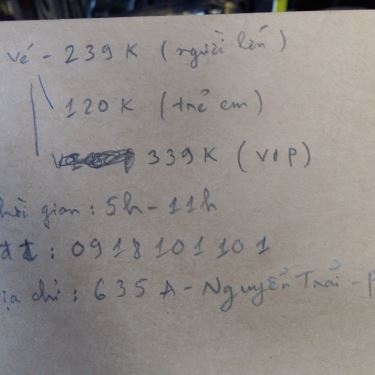 Vé - 239K (người lớn)
120K (trẻ em)
339K (VIP)
hời gian : 5h - 11h
đt : 0918101101
ịa chỉ : 635A - Nguyễn Trãi -